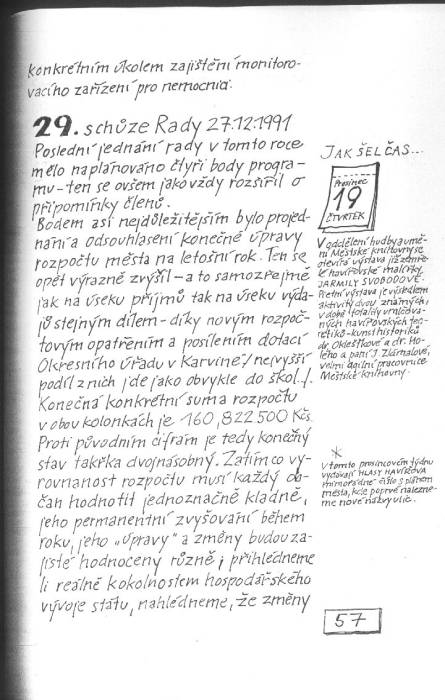 konkrétním úkolem zajištění monitoro-
vacího zařízení pro nemocnici.
29. schůze Rady 27.12.1991
Poslední jednání rady v tomto roce
mělo naplánováno čtyři body progra-
mu - ten se ovšem jako vždy rozšířil o
připomínky členů.
Bodem asi nejdůležitějším bylo projed-
nání a odsouhlasení konečné úpravy
rozpočtu města na letošní rok. Ten se
opět výrazně zvýšil - a to samozřejmě
jak na úseku příjmů tak na úseku výda-
jů stejným dílem - díky novým rozpoč-
tovým opatřením a posílením dotací
Okresního úřadu v Karviné / nejvyšší
podíl z nich jde jako obvykle do škol./.
Konečná konkrétní suma rozpočtu
v obou kolonkách je 160,822500 Kčs.
Proti původním cifrám je tedy konečný
stav takřka dvojnásobný. Zatím co vy-
rovnanost rozpočtu musí každý ob-
čan hodnotit jednoznačně kladně,
jeho permanentní zvyšování během
roku, jeho „úpravy" a změny budou za-
jisté hodnoceny různě; přihlédneme
li reálně kokolnostem hospodářského
vývoje státu, nahlédneme, že změny
JAK ŠEL ČAS...
Prosinec
19
ČTVRTEK
V oddělení hudby a umě-
ní Městské knihovny se
otevírá výstava již zemře-
lé havířovské malířky
JARMILY SVOBODOVÉ.
Pietní výstava je výsledkem
aktivity dvou známých
v době totality umlčova-
ných havířovských teo-
retiků - kunsthistoriků
dr. Oklešťkové a dr. Ho-
lého a paní J. Zlámalové,
velmi agilní pracovnice
Městské knihovny.
*
V tomto prosincovém týdnu
vydávají HLASY HAVÍŘOVA
mimořádné číslo s plánem
města, kde poprvé nalezne-
me nové názvy ulic.
57